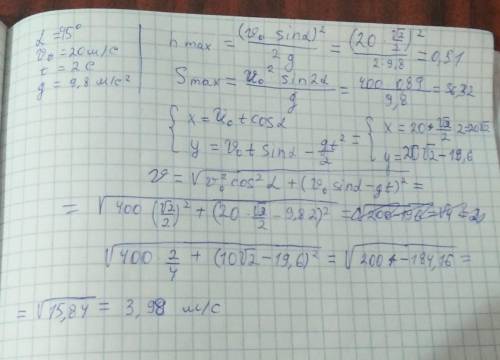 L = 45°
v₀ = 20 м/с
t = 2 с
g = 9,8 м/с²
h max = (v₀ sinα)² / 2g = (20 √2/2)² / 2·9,8 = 0,51
S max = v₀² sin2α / g = 400 0,89 / 9,8 = 36,32
{ x = v₀ t cosα = { x = 20 · √2/2 · 2 = 20√2
y = v₀ t sinα − gt²/2 y = 20√2 − 19,6
v = √(v₀² cos² α + (v₀ sinα − gt)²) =
= √(400 (√2/2)² + (20 · √2/2 − 9,82)²) =
√(400 2/4 + (10√2 − 19,6)²) = √(200 + −184,16) =
= √15,84 = 3,98 м/с